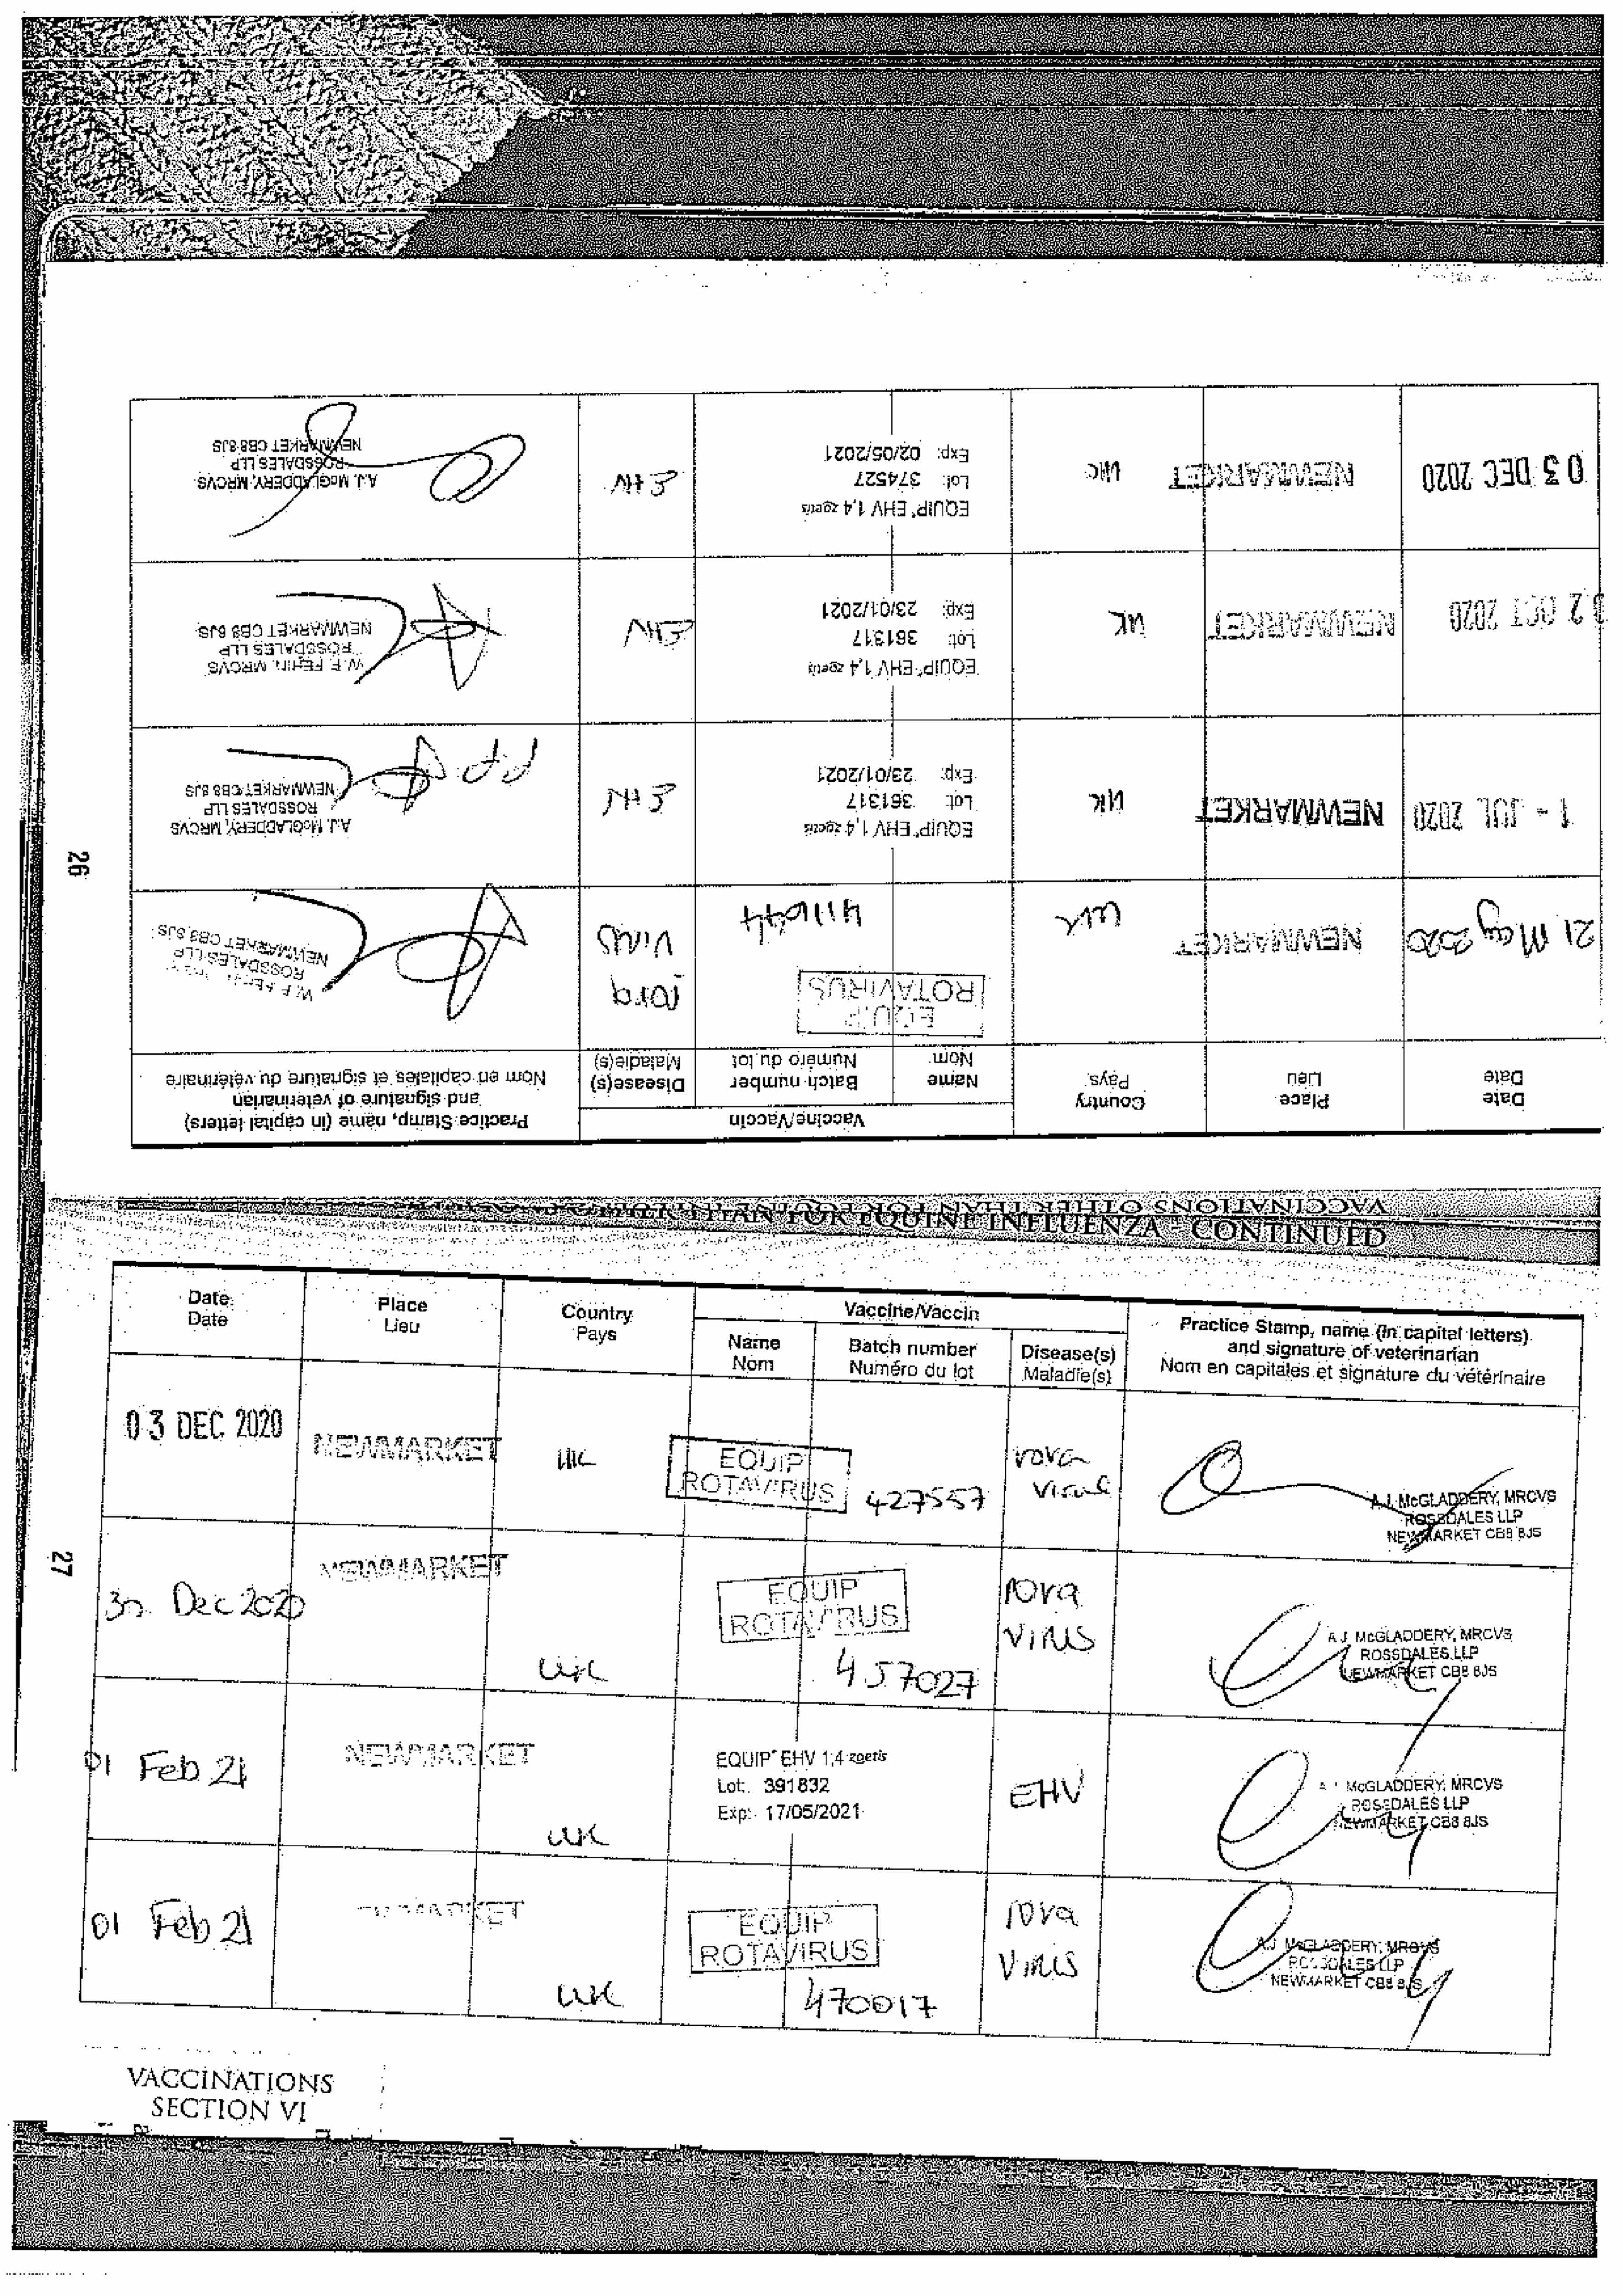 VACCINATIONS OTHER THAN FOR EQUINE INFLUENZA
Date
Date
Place
Lieu
Country
Pays
Vaccine/Vaccin
Name
Nom
Batch number
Numéro du lot
Disease(s)
Maladie(s)
Practice Stamp, name (in capital letters)
and signature of veterinarian
Nom en capitales et signature du vétérinaire
21 May 2020
NEWMARKET
UK
EQUIP
ROTAVIRUS
411644
rota
virus
ROSSDALES LLP
NEWMARKET CB8 8JS
1 - JUL 2020
NEWMARKET
UK
EQUIP EHV 1,4 zoetis
Lot: 361317
Exp: 23/01/2021
EHV
PP
A.J. McGLADDERY, MRCVS
ROSSDALES LLP
NEWMARKET CB8 8JS
02 OCT 2020
NEWMARKET
UK
EQUIP EHV 1,4 zoetis
Lot: 361317
Exp: 23/01/2021
EHV
W.F. FEHIN, MRCVS
ROSSDALES LLP
NEWMARKET CB8 8JS
03 DEC 2020
NEWMARKET
UK
EQUIP EHV 1,4 zoetis
Lot: 374527
Exp: 02/05/2021
EHV
A.J. McGLADDERY, MRCVS
ROSSDALES LLP
NEWMARKET CB8 8JS
26
THAN FOR EQUINE INFLUENZA - CONTINUED
Date
Date
Place
Lieu
Country
Pays
Vaccine/Vaccin
Name
Nom
Batch number
Numéro du lot
Disease(s)
Maladie(s)
Practice Stamp, name (in capital letters)
and signature of veterinarian
Nom en capitales et signature du vétérinaire
03 DEC 2020
NEWMARKET
UK
EQUIP
ROTAVIRUS
427557
rota
virus
A.J. McGLADDERY, MRCVS
ROSSDALES LLP
NEWMARKET CB8 8JS
Dec 2020
NEWMARKET
UK
EQUIP
ROTAVIRUS
457027
rota
virus
A.J. McGLADDERY, MRCVS
ROSSDALES LLP
NEWMARKET CB8 8JS
01 Feb 21
NEWMARKET
UK
EQUIP EHV 1,4 zoetis
Lot: 391832
Exp: 17/05/2021
EHV
A.J. McGLADDERY, MRCVS
ROSSDALES LLP
NEWMARKET CB8 8JS
01 Feb 21
NEWMARKET
UK
EQUIP
ROTAVIRUS
470017
rota
virus
A.J. McGLADDERY, MRCVS
ROSSDALES LLP
NEWMARKET CB8 8JS
27
VACCINATIONS
SECTION VI